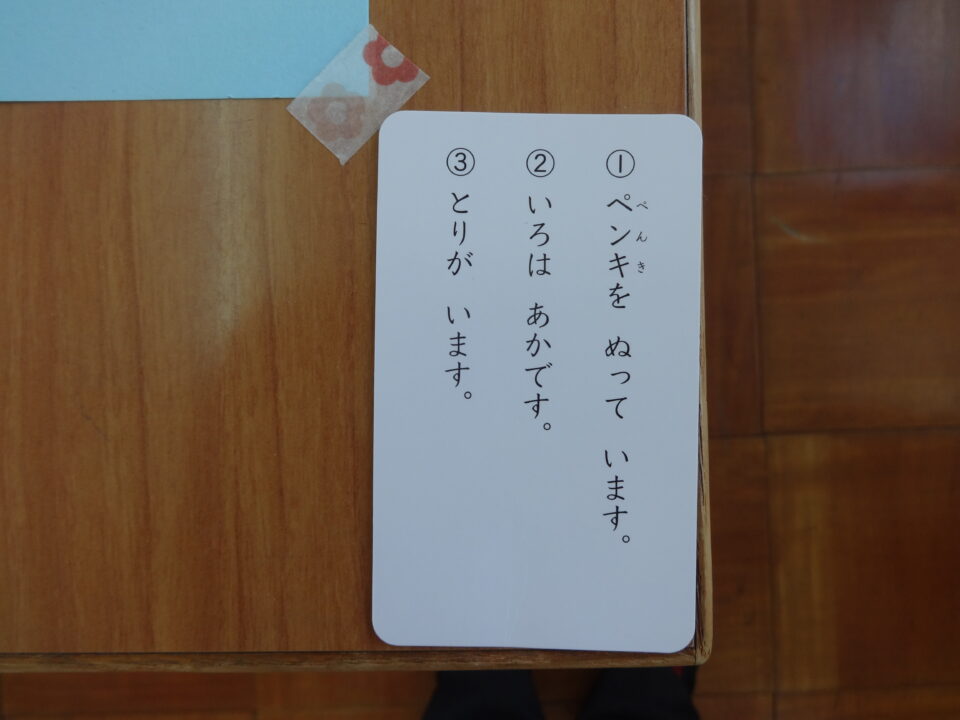 ① ペンキを ぬって います。
ぺんき
② いろは あかです。
③ とりが います。